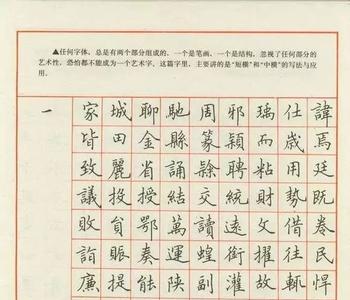 ▲任何字体，总是有两个部分组成的，一个是笔画，一个是结构，忽视了任何部分的
艺术性，恐怕都不能成为一个艺术字，这篇字里，主要讲的是“短横”和“中横”的写法与应
用。
一
家城聊馳周邪瑀仕諱
皆田金縣篆穎而歲焉
致麗省誦綠聘粘用廷
議投授結交統財勢既
敗貟鄂萬讀遠文借卷
詣賑奏運蝗銜擢往民
廉提能陕副灌故輒悍